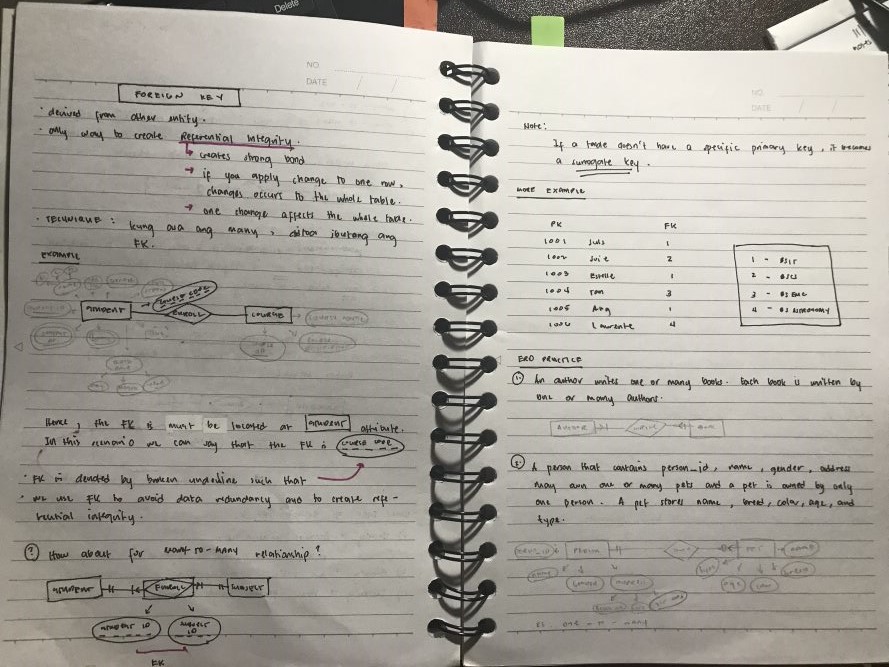 Delete
NO.
DATE / /
FOREIGN KEY
· derived from other entity.
· only way to create Referential Integrity.
creates strong bond
→ if you apply change to one row,
changes occurs to the whole table.
→ one change affects the whole table.
· TECHNIQUE : kung asa ang many, ditoa ibutang ang
FK.
EXAMPLE
STUDENT
COURSE CODE
ENROLL
COURSE
Here, the FK is must be located at STUDENT attribute.
In this scenario we can say that the FK is COURSE CODE
· FK is denoted by broken underline such that
· we use FK to avoid data redundancy and to create refe-
rential integrity.
? How about for many-to-many relationship?
STUDENT ENROLL SUBJECT
STUDENT ID SUBJECT ID
FK
NO.
DATE / /
Note:
If a table doesn't have a specific primary key, it becomes
a surrogate key.
MORE EXAMPLE
PK FK
1001 1
1002 2
1003 Estelle 1
1004 3
1005 1
1006 4
1 - BSIT
2 - BSCS
3 - BS EMC
4 - BS ASTRONOMY
ERD PRACTICE
1. An author writes one or many books. Each book is written by
one or many authors.
AUTHOR WRITE BOOK
2. A person that contains person_id, name, gender, address
may own one or many pets and a pet is owned by only
one person. A pet stores name, breed, color, age, and
type.
PERSON PET
one - to - many